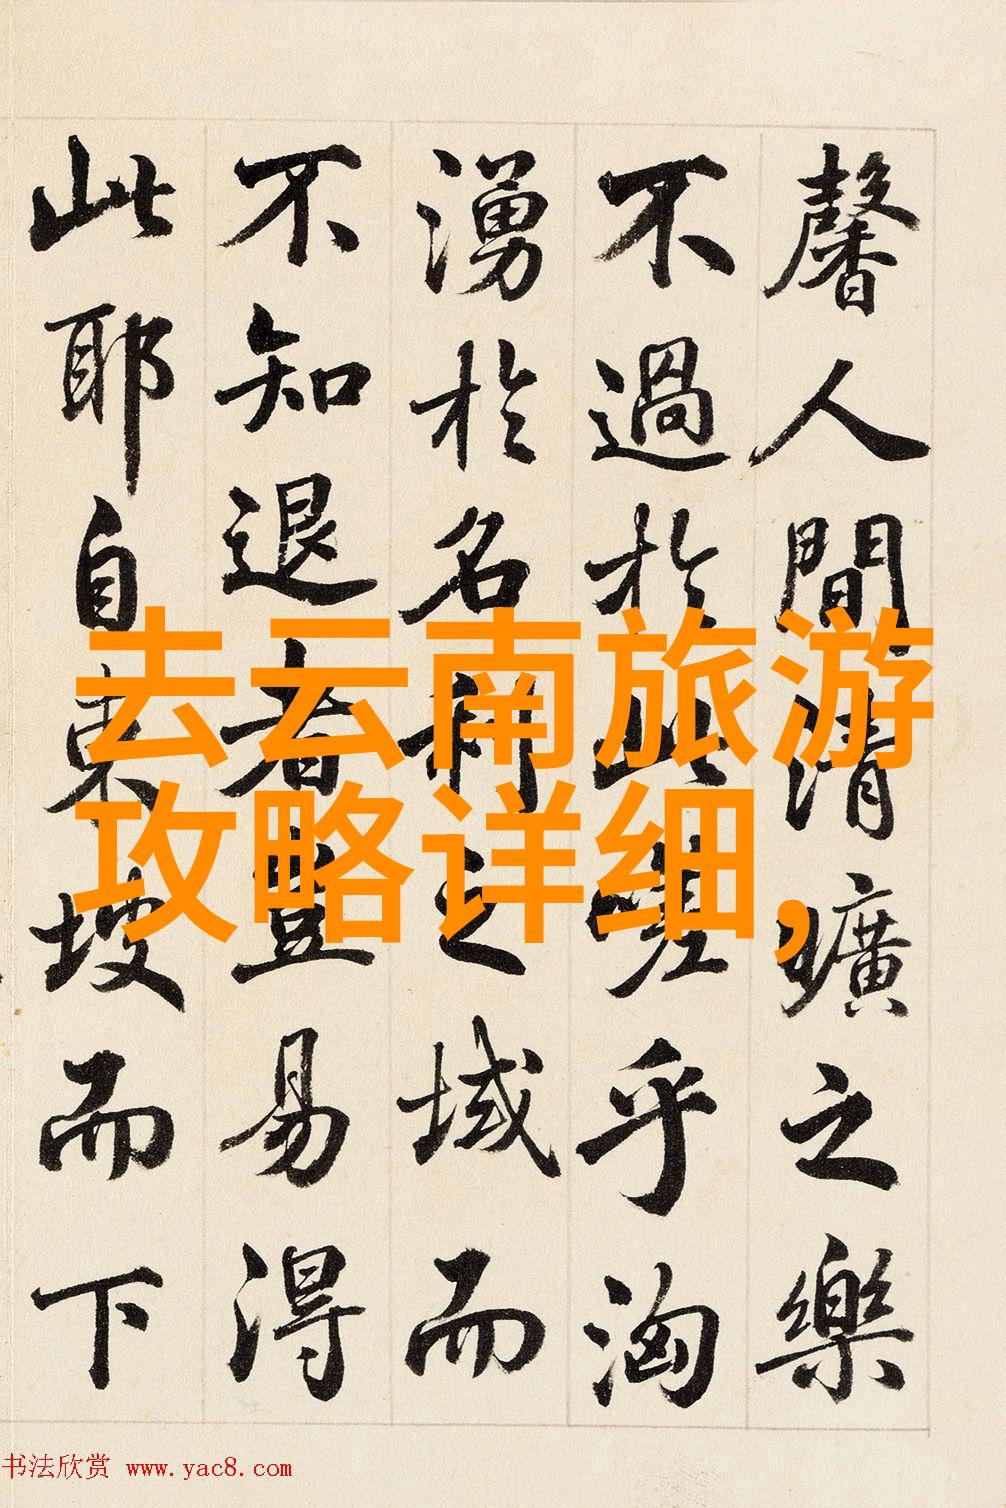 馨人間清曠之樂
不過於此嗟乎洶
湧於名利之域而
不知退者豈易得
此耶自東坡而下
去云南旅游
攻略详细,
书法欣赏 www.yac8.com